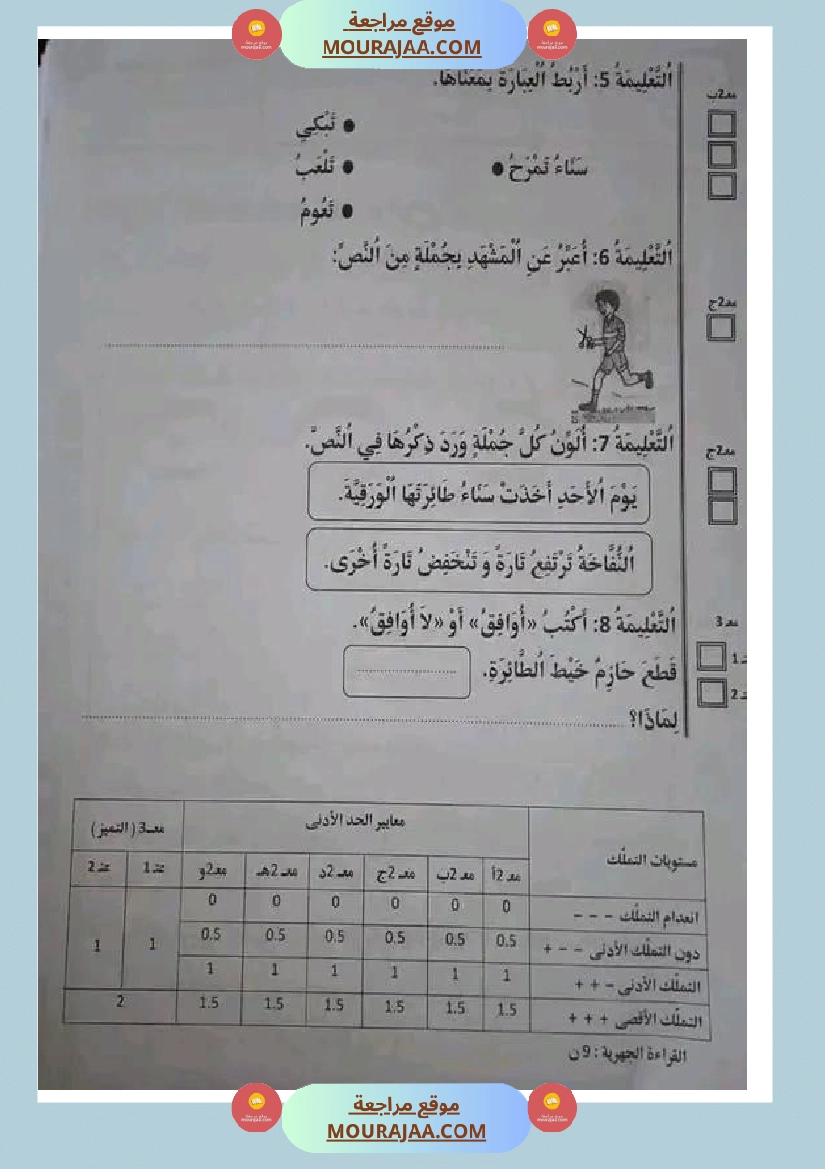 موقع مراجعة
MOURAJAA.COM
اَلتَّعْلِيمَةُ 5: أَرْبُطُ الْعِبَارَةَ بِمَعْنَاهَا.
معـ2ب
● تَبْكِي
سَنَاءُ تَمْرَحُ ●
● تَلْعَبُ
● تَعُومُ
اَلتَّعْلِيمَةُ 6: أُعَبِّرُ عَنِ اُلْمَشْهَدِ بِجُمْلَةٍ مِنَ اُلنَّصِّ:
معـ2ج
اَلتَّعْلِيمَةُ 7: أُلَوِّنُ كُلَّ جُمْلَةٍ وَرَدَ ذِكْرُهَا فِي اُلنَّصِّ.
معـ2ج
يَوْمَ اُلأَحَدِ أَخَذَتْ سَنَاءُ طَائِرَتَهَا اُلْوَرَقِيَّةَ.
اَلنُّفَّاخَةُ تَرْتَفِعُ تَارَةً وَ تَنْخَفِضُ تَارَةً أُخْرَى.
اَلتَّعْلِيمَةُ 8: أَكْتُبُ «أُوَافِقُ» أَوْ «لاَ أُوَافِقُ».
معـ 3
قَطَعَ حَازِمُ خَيْطَ اُلطَّائِرَةِ. ....................
عـ1
عـ2
لِمَاذَا؟ ....................
مستويات التملّك
معايير الحد الأدنى
معـ3 (التميز)
معـ 2أ معـ 2ب معـ 2ج معـ 2د معـ 2هـ معـ2و عـ1 عـ2
انعدام التملّك - - - 0 0 0 0 0 0
دون التملّك الأدنى + - - 0.5 0.5 0.5 0.5 0.5 0.5
1 1
التملّك الأدنى + + - 1 1 1 1 1 1
التملّك الأقصى + + + 1.5 1.5 1.5 1.5 1.5 1.5 2
القراءة الجهرية : 9ن
موقع مراجعة
MOURAJAA.COM